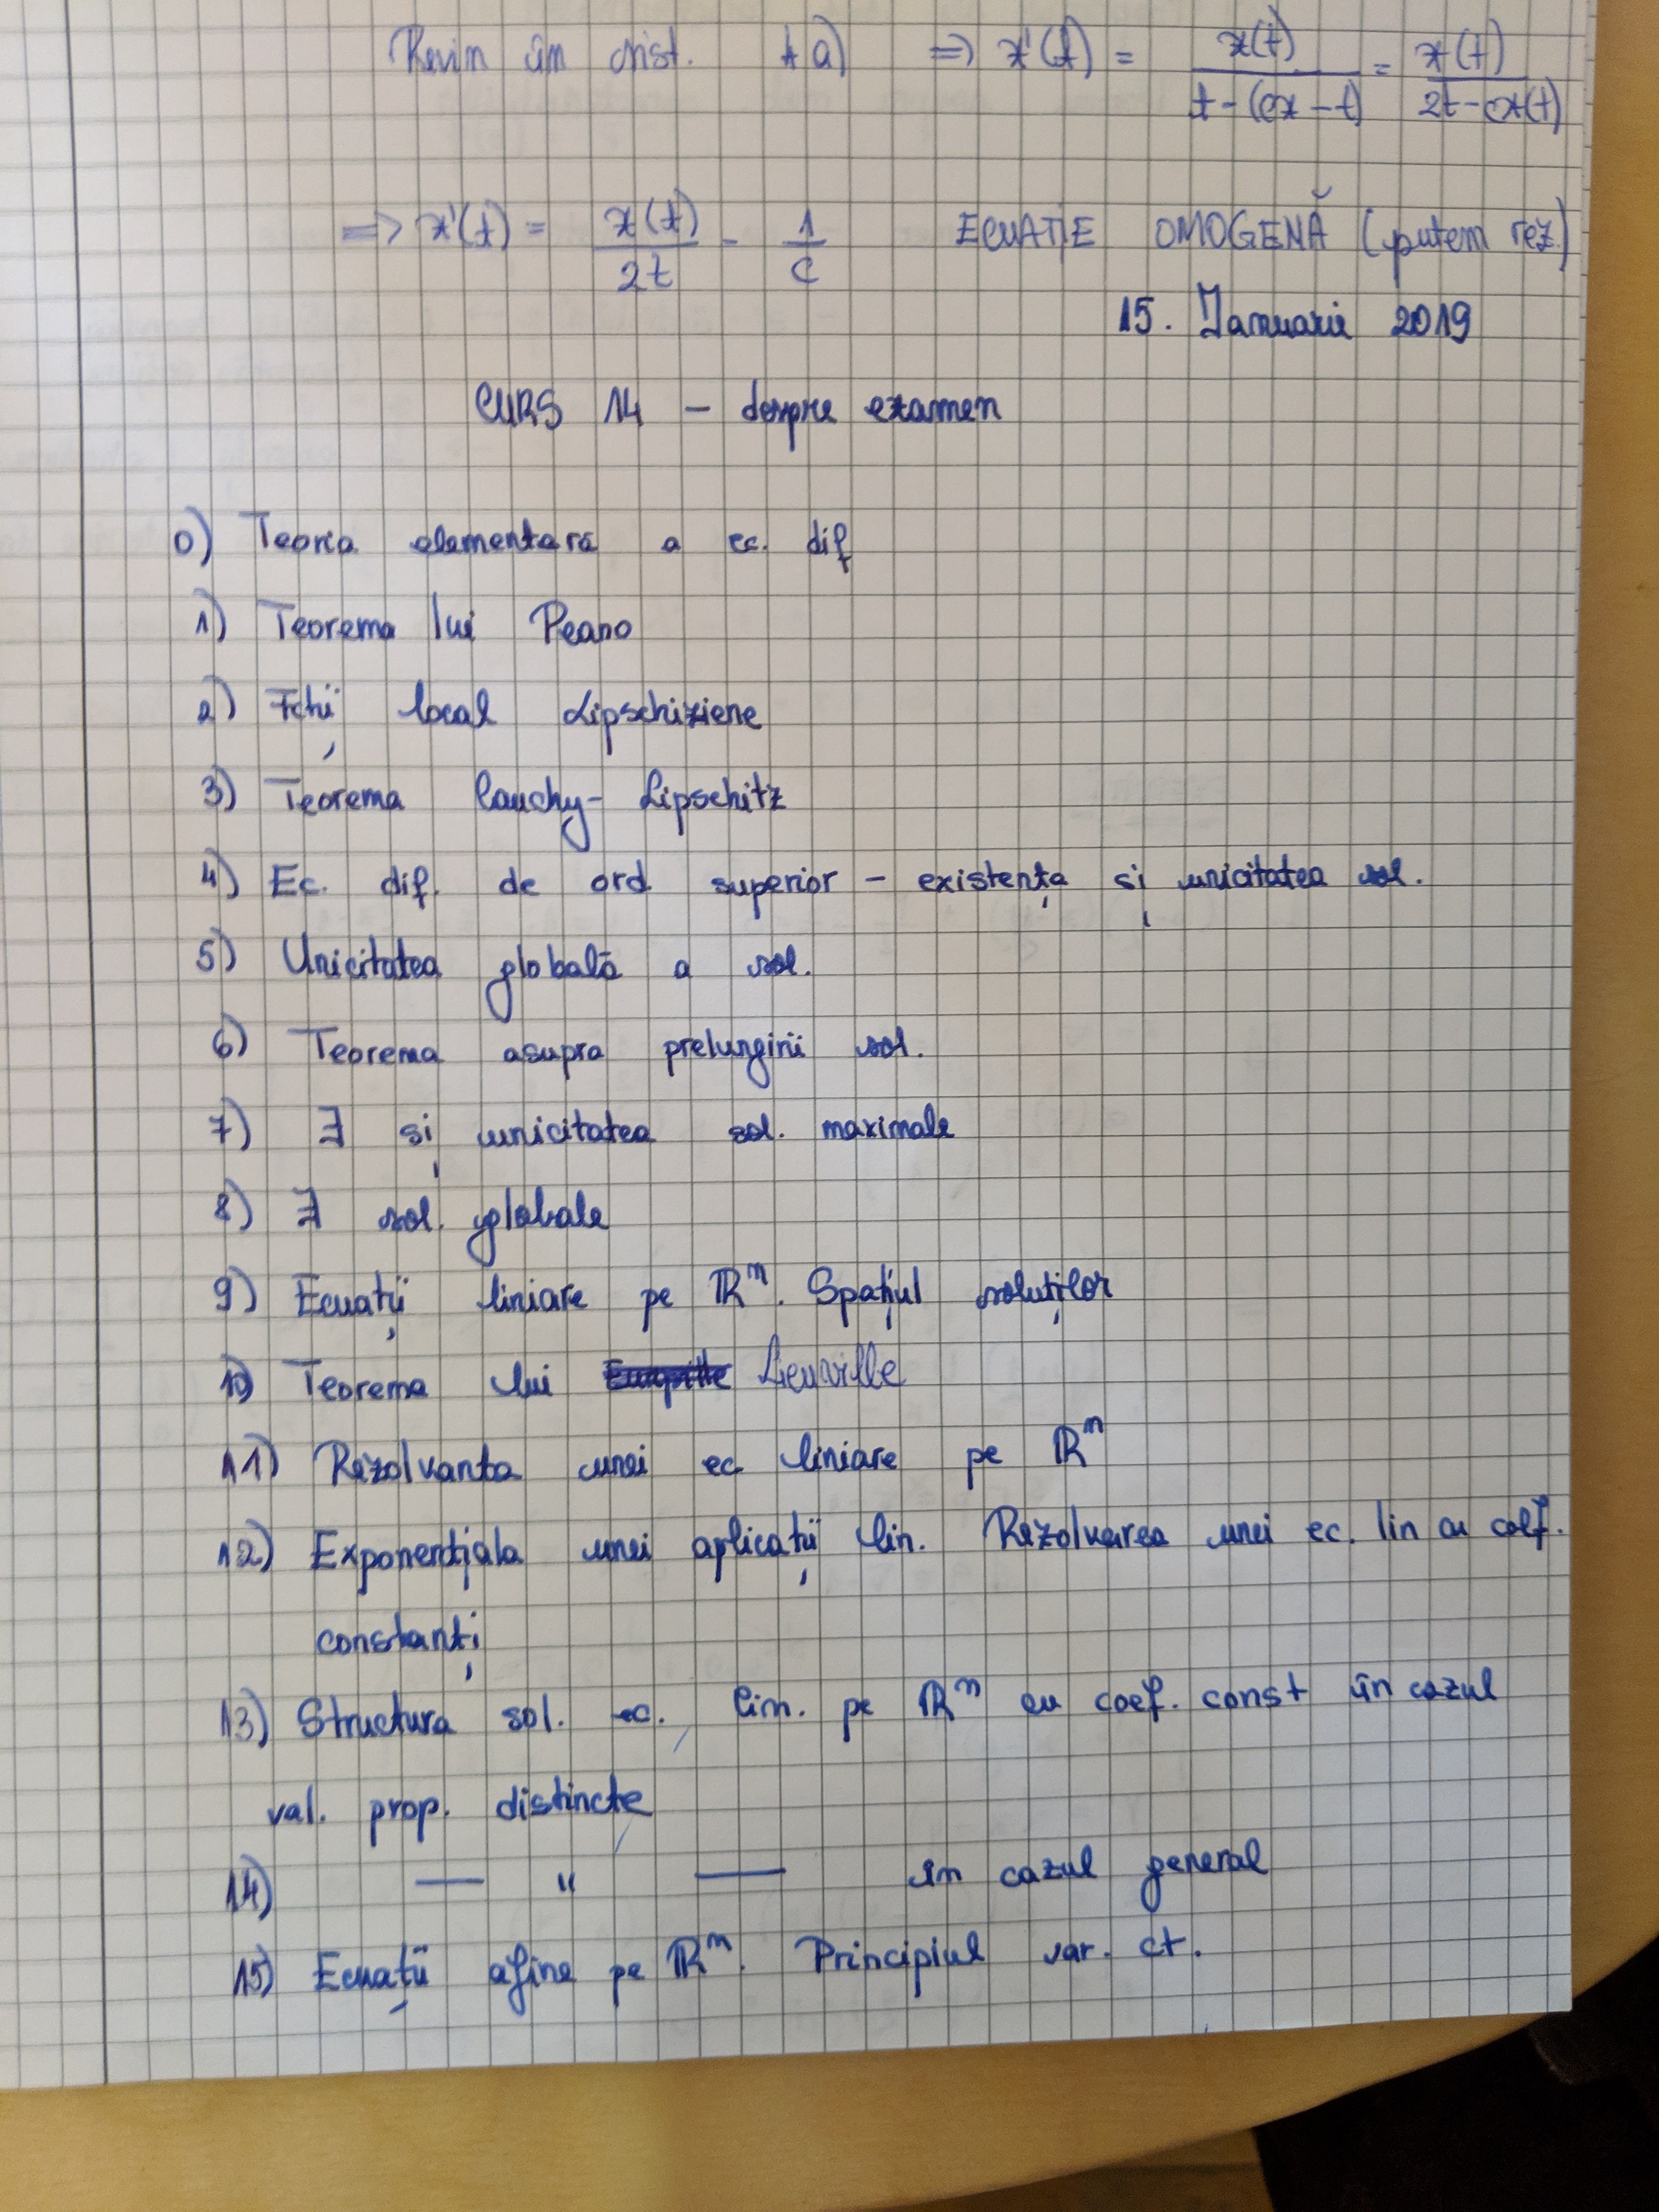 Revin în sist. + a) => x'(t) = x(t) / (t-(cx-t)) = x(t) / (2t-cx(t))
=> x'(t) = x(t)/2t - 1/c ECUAȚIE OMOGENĂ (putem rez.)
15. Ianuarie 2019
CURS 14 - despre examen
0) Teoria elementară a ec. dif
1) Teorema lui Peano
2) Fcții local Lipschiziene
3) Teorema Cauchy-Lipschitz
4) Ec. dif. de ord superior - existența și unicitatea sol.
5) Unicitatea globală a sol.
6) Teorema asupra prelungirii sol.
7) ∃ și unicitatea sol. maximale
8) ∃ sol. globale
9) Ecuații liniare pe ℝⁿ. Spațiul soluțiilor
10) Teorema lui Liouville
11) Rezolvanta unei ec liniare pe ℝⁿ
12) Exponențiala unei aplicații lin. Rezolvarea unei ec. lin cu coef.
constanți
13) Structura sol. ec. lin. pe ℝⁿ cu coef. const în cazul
val. prop. distincte
14) — " — în cazul general
15) Ecuații afine pe ℝⁿ. Principiul var. ct.